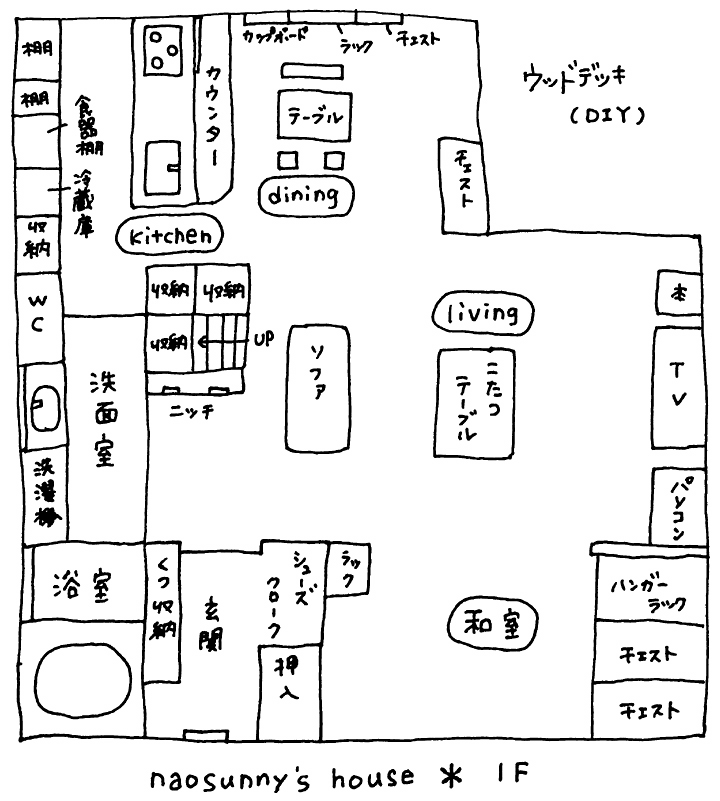 棚
カップボード
ラック
チェスト
ウッドデッキ
(DIY)
カウンター
棚
食器棚
テーブル
チェスト
冷蔵庫
dining
収納
kitchen
収納
収納
WC
本
living
収納
UP
ソファ
こたつ
テーブル
TV
洗面室
ニッチ
洗濯機
パソコン
浴室
くつ収納
シューズ
クローク
ラック
玄関
ハンガー
ラック
和室
押入
チェスト
チェスト
naosunny's house * 1F